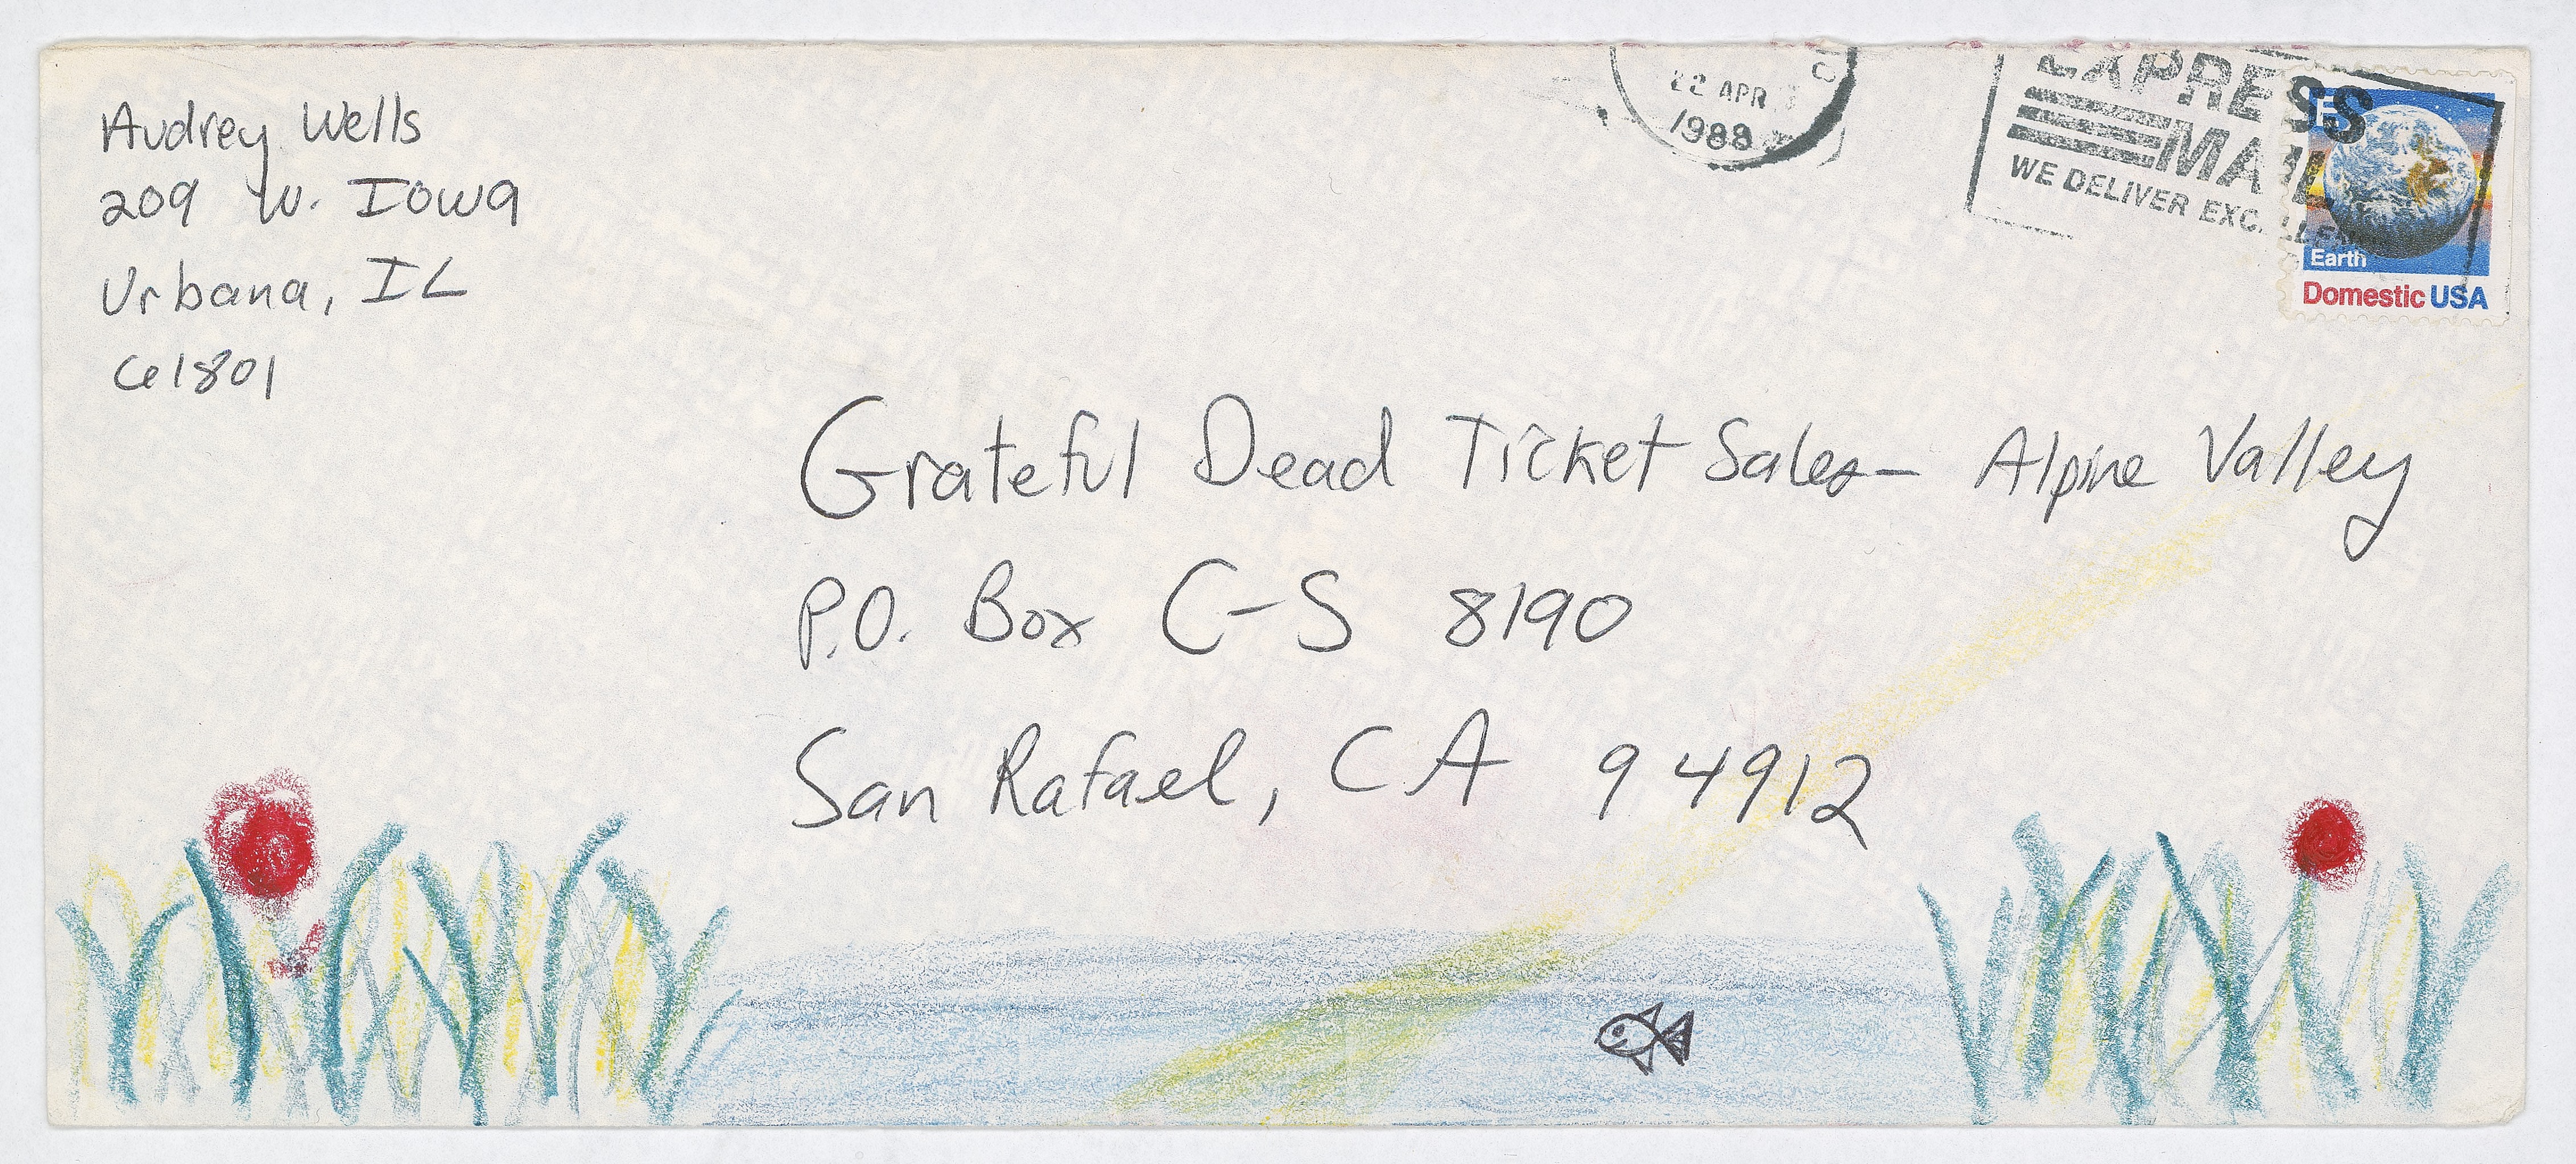 Audrey Wells
209 W. Iowa
Urbana, IL
61801
22 APR
1988
EXPRESS
MAIL
WE DELIVER EXCELLENCE
E
Earth
Domestic USA
Grateful Dead Ticket Sales- Alpine Valley
P.O. Box C-S 8190
San Rafael, CA 94912